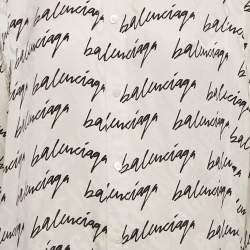 balenciaga balenciaga
balenciaga balenciaga balenciaga
balenciaga balenciaga balenciaga
balenciaga balenciaga balenciaga
balenciaga balenciaga balenciaga
balenciaga balenciaga balenciaga
balenciaga balenciaga balenciaga
balenciaga balenciaga